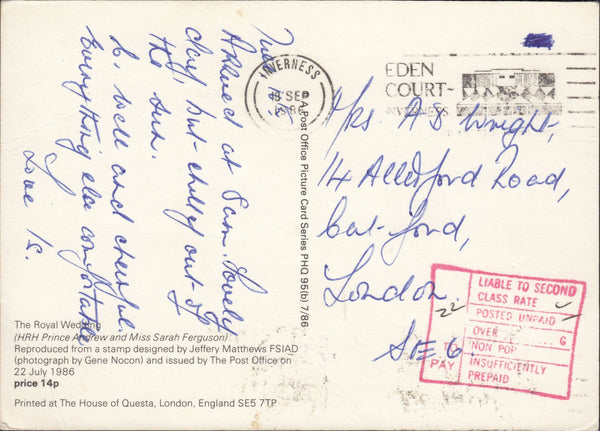 Tues.
Arrived at 8am. Lovely
day but chilly out of
the sun.
D. well and cheerful.
Everything else comfortable
Love K.
INVERNESS
SEP
1986
EDEN
COURT~
INVERNESS
Mrs. A S Wright,
14 Allerford Road,
Cat-ford,
London
S.E.6.
A Post Office Picture Card Series PHQ 95(b) 7/86
LIABLE TO SECOND
CLASS RATE
POSTED UNPAID
OVER G
NON POP
INSUFFICIENTLY
PREPAID
TO
PAY
22
The Royal Wedding
(HRH Prince Andrew and Miss Sarah Ferguson)
Reproduced from a stamp designed by Jeffery Matthews FSIAD
(photograph by Gene Nocon) and issued by The Post Office on
22 July 1986
price 14p
Printed at The House of Questa, London, England SE5 7TP